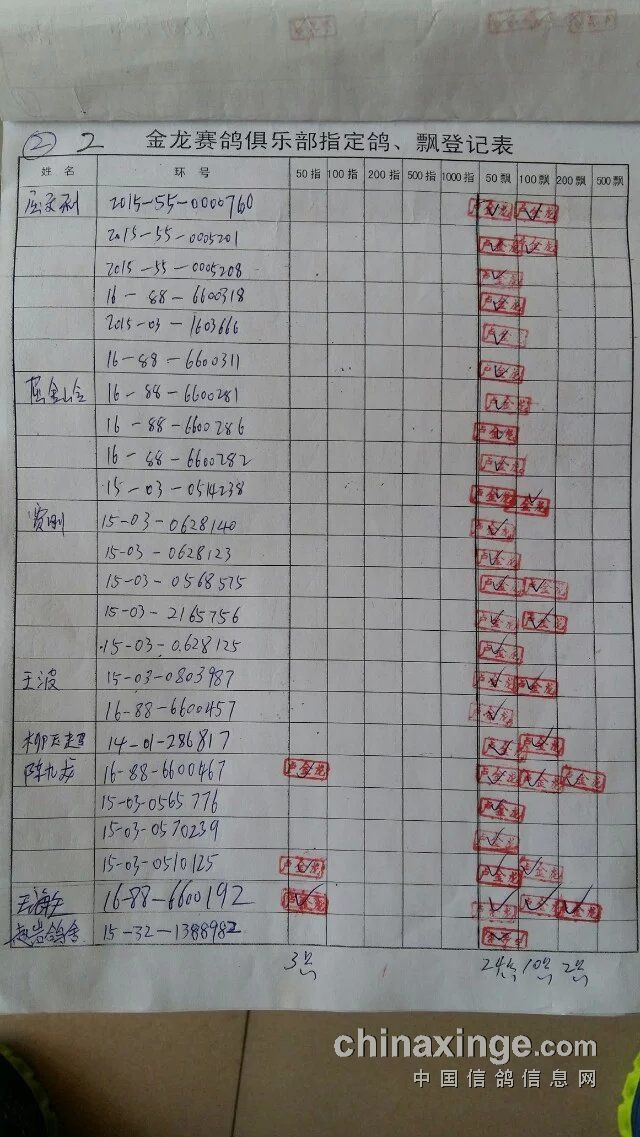 ② 2 金龙赛鸽俱乐部指定鸽、飘登记表
姓名 环号 50指 100指 200指 500指 1000指 50飘 100飘 200飘 500飘
2015-55-0000760 卢金龙 卢金龙
2015-55-0005201 卢金龙 卢金龙
2015-55-0005208 卢金龙
16-88-6600318 卢金龙
2015-03-1603666 卢金
16-88-6600311 卢金龙
16-88-6600281 卢金龙
16-88-6600286 卢金龙
16-88-6600282 卢金龙
15-03-0514238 卢金龙 金龙
贾刚 15-03-0628140 卢金龙
15-03-0628123 卢金龙
15-03-0568575 卢金龙 金龙
15-03-2165756 卢金龙 卢金龙
15-03-0628125 卢金龙
王波 15-03-0803987 卢金龙 卢金龙
16-88-6600457 卢金龙
14-01-286817 卢金龙 卢金龙
陈九龙 16-88-6600467 卢金龙 卢金龙 卢金龙 金龙
15-03-0565776 卢金龙
15-03-0570239 卢金龙
15-03-0510125 卢金龙 卢金龙 卢金龙
16-88-6600192 卢金龙 卢金龙 卢金龙 金龙
赵岩鸽舍 15-32-1388982
3只 24只 10只 2只
chinaxinge.com
中国信鸽信息网